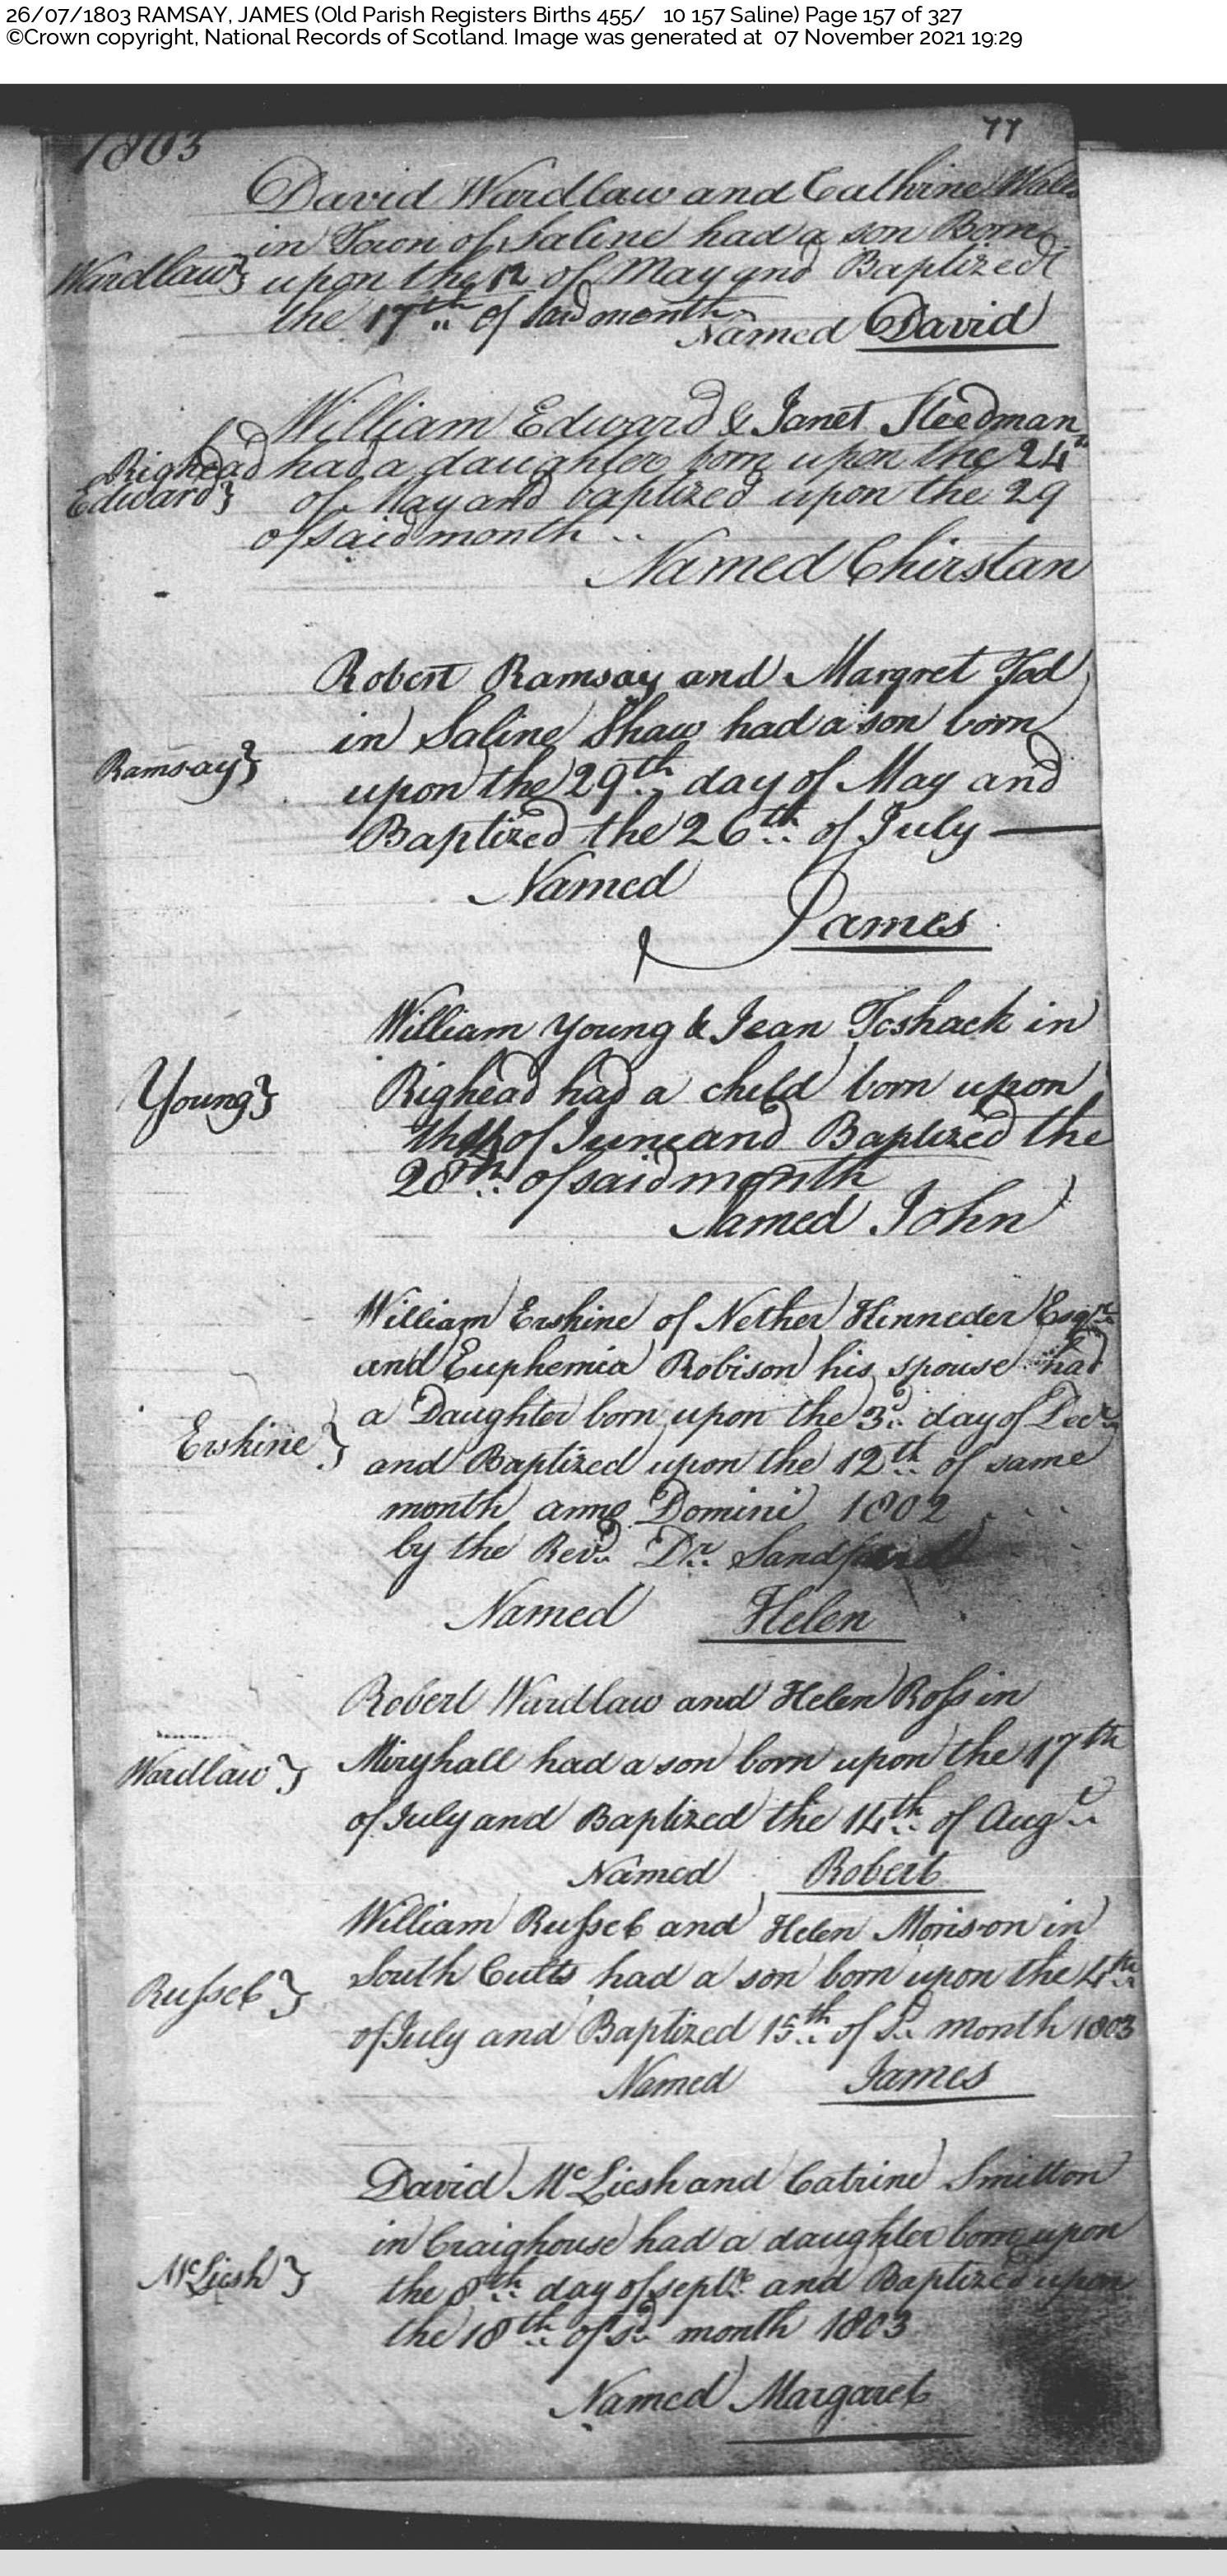 26/07/1803 RAMSAY, JAMES (Old Parish Registers Births 455/ 10 157 Saline) Page 157 of 327
©Crown copyright, National Records of Scotland. Image was generated at 07 November 2021 19:29
1803
77
David Wardlaw and Cathrine Watts
in Town of Saline had a son Born
Wardlaw} upon the 12 of May and Baptized
the 17th of said month
Named David
William Edward & Janet Steedman
Righead had a daughter born upon the 24th
Edward} of May and baptized upon the 29
of said month
Named Chirstan
Robert Ramsay and Margret Tod
in Saline Shaw had a son born
Ramsay} upon the 29th day of May and
Baptized the 26th of July
Named
James
William Young & Jean Toshack in
Young} Righead had a child born upon
of June and Baptized the
28th of said month
Named John
William Erskine of Nether Kinneder Esqr
and Euphemia Robison his spouse had
Erskine} a Daughter born upon the 3d day of Decr
and Baptized upon the 12th of same
month anno Domini 1802
by the Revd Dr
Named Helen
Robert Wardlaw and Helen Ross in
Wardlaw} Miryhall had a son born upon the 17th
of July and Baptized the 14th of Augt
Named Robert
William Russel and Helen Morison in
Russel} South Cults had a son born upon the 4th
of July and Baptized 15th of Sd month 1803
Named James
David McLiesh and Catrine Smitton
in Craighouse had a daughter born upon
McLiesh} the 8th day of septr and Baptized upon
the 18th of sd month 1803
Named Margaret